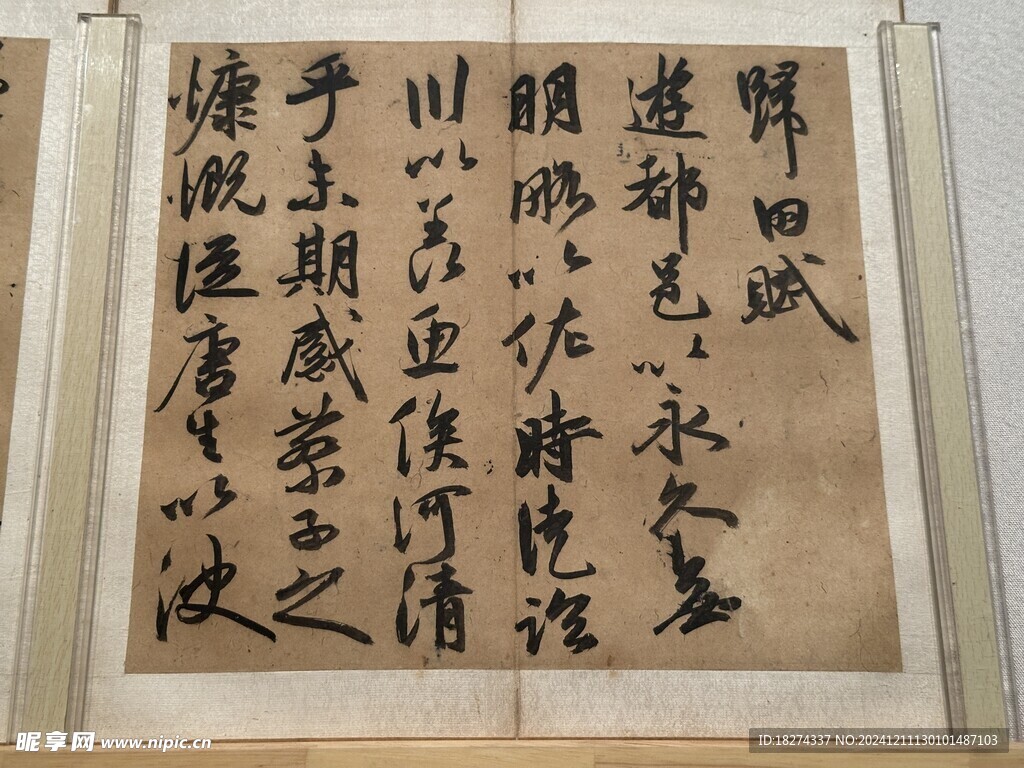 歸田賦
遊都邑以永久無
明略以佐時徒臨
川以羨魚俟河清
乎未期感蔡子之
慷慨從唐生以決
昵享网 www.nipic.cn
ID:18274337 NO:20241211130101487103